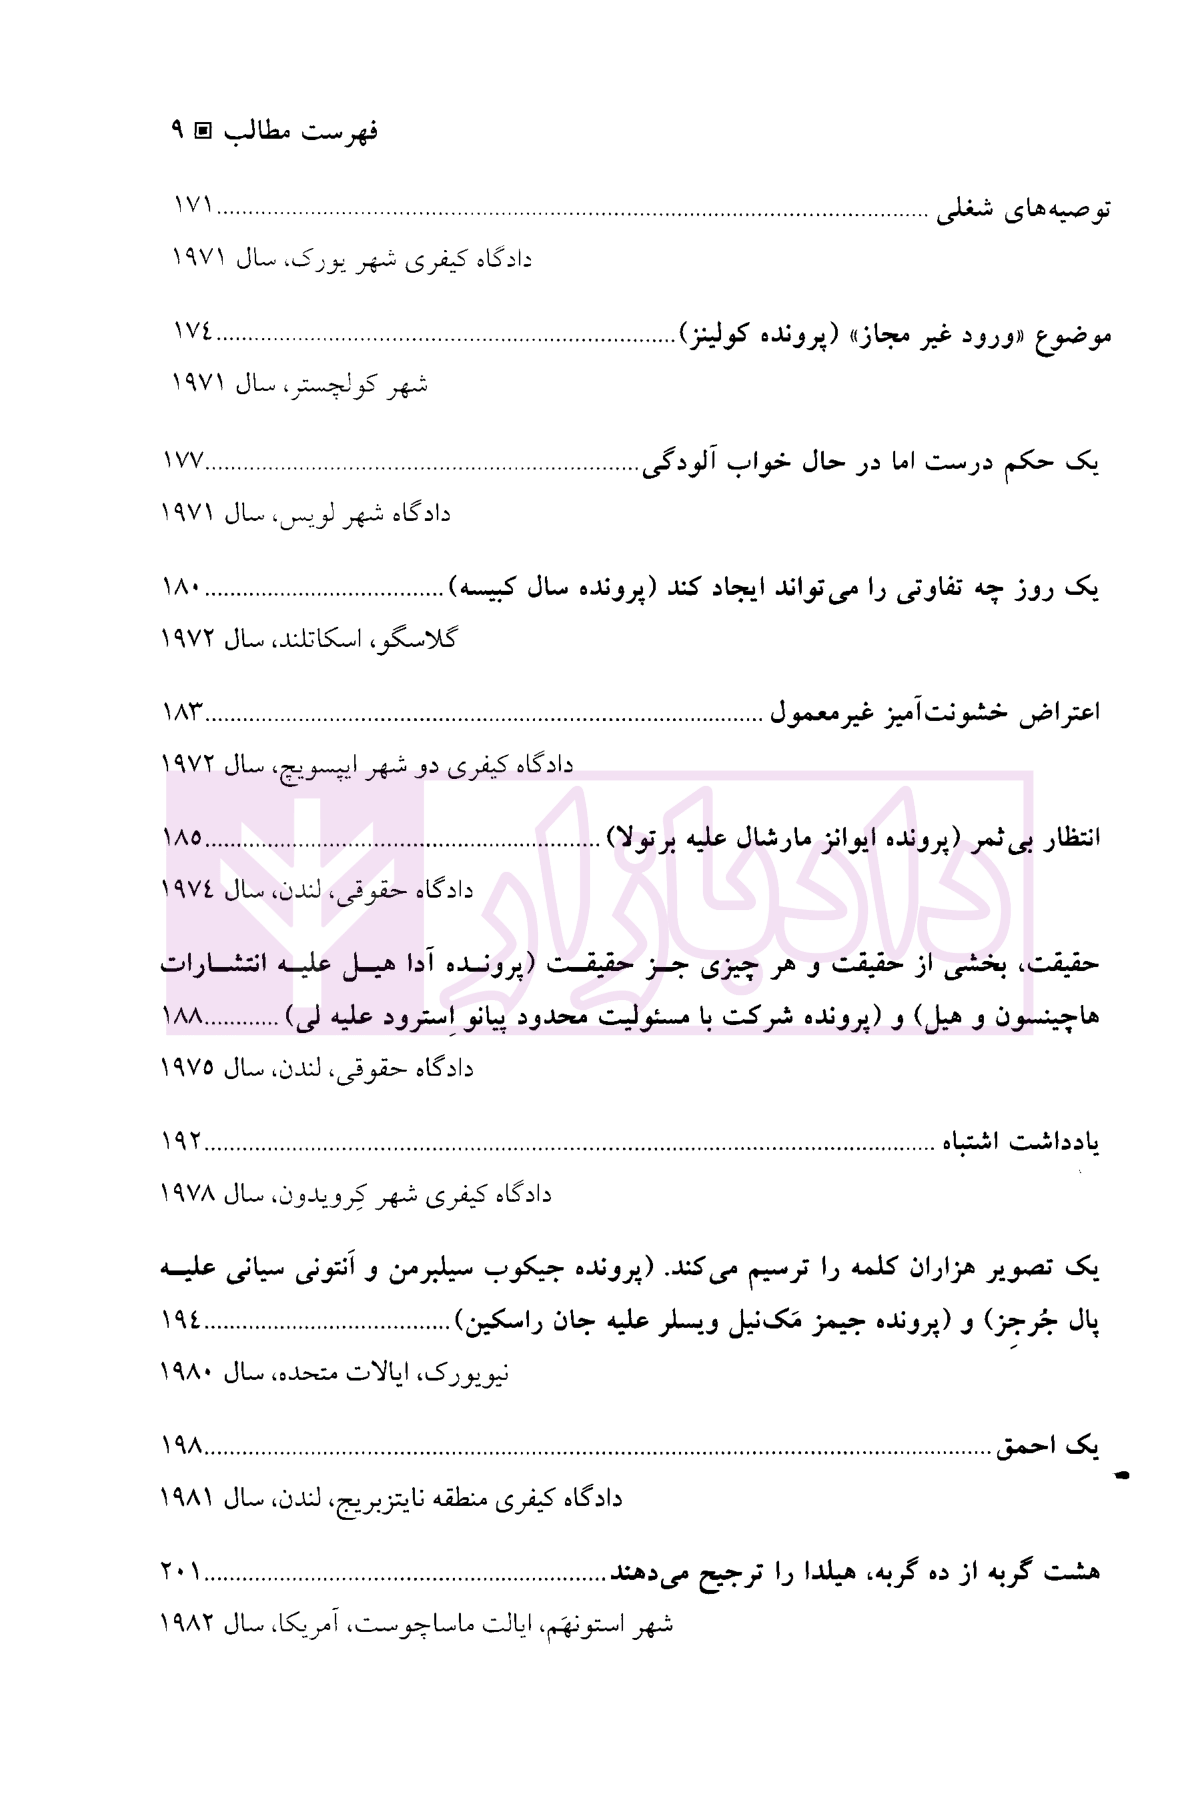 فهرست مطالب ▣ ۹
توصیه‌های شغلی ........................................ ۱۷۱
دادگاه کیفری شهر یورک، سال ۱۹۷۱
موضوع «ورود غیر مجاز» (پرونده کولینز) ........................................ ۱۷٤
شهر کولچستر، سال ۱۹۷۱
یک حکم درست اما در حال خواب آلودگی ........................................ ۱۷۷
دادگاه شهر لویس، سال ۱۹۷۱
یک روز چه تفاوتی را می‌تواند ایجاد کند (پرونده سال کبیسه) ........................................ ۱۸۰
گلاسگو، اسکاتلند، سال ۱۹۷۲
اعتراض خشونت‌آمیز غیرمعمول ........................................ ۱۸۳
دادگاه کیفری دو شهر ایپسویچ، سال ۱۹۷۲
انتظار بی‌ثمر (پرونده ایوانز مارشال علیه برتولا) ........................................ ۱۸٥
دادگاه حقوقی، لندن، سال ۱۹۷٤
دادبازار
حقیقت، بخشی از حقیقت و هر چیزی جـز حقیقـت (پرونـده آدا هیـل علیـه انتشـارات
هاچینسون و هیل) و (پرونده شرکت با مسئولیت محدود پیانو اِسترود علیه لی) ............ ۱۸۸
دادگاه حقوقی، لندن، سال ۱۹۷٥
یادداشت اشتباه ........................................ ۱۹۲
دادگاه کیفری شهر کِرویدون، سال ۱۹۷۸
یک تصویر هزاران کلمه را ترسیم می‌کند. (پرونده جیکوب سیلبرمن و آنتونی سیانی علیـه
پال جُرجِز) و (پرونده جیمز مَک‌نیل ویسلر علیه جان راسکین) ........................................ ۱۹٤
نیویورک، ایالات متحده، سال ۱۹۸۰
یک احمق ........................................ ۱۹۸
دادگاه کیفری منطقه نایتزبریج، لندن، سال ۱۹۸۱
هشت گربه از ده گربه، هیلدا را ترجیح می‌دهند ........................................ ۲۰۱
شهر استونهَم، ایالت ماساچوست، آمریکا، سال ۱۹۸۲